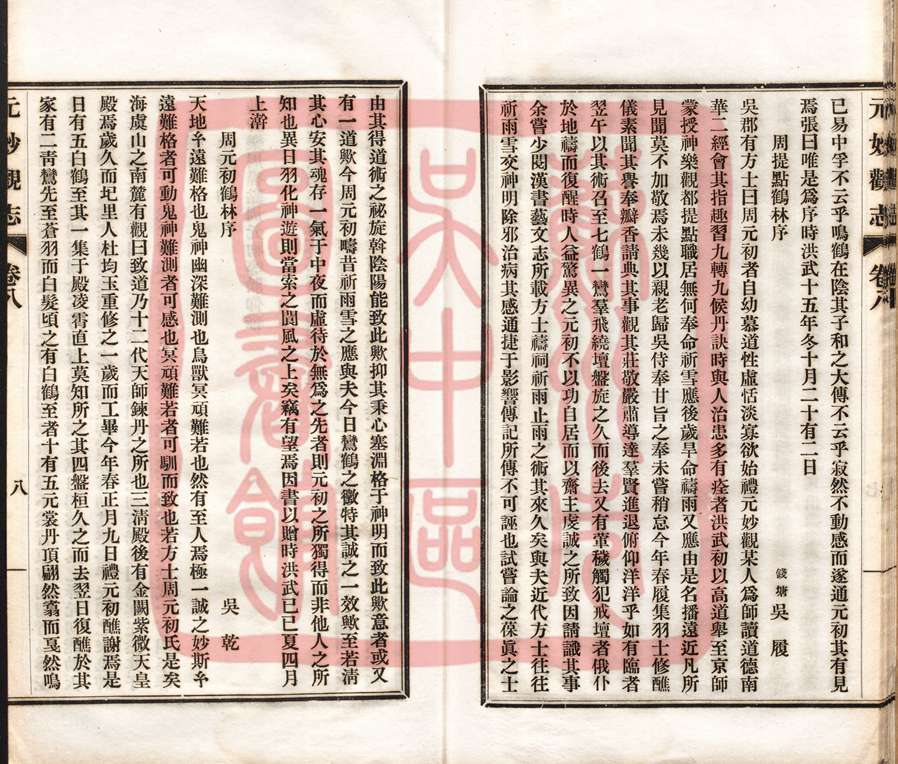 元妙觀志
卷八
已易中孚不云乎鳴鶴在陰其子和之大傳不云乎寂然不動感而遂通元初其有見
焉張曰唯是爲序時洪武十五年冬十月二十有二日
周提點鶴林序
錢塘吳履
吳郡有方士曰周元初者自幼慕道性虛恬淡寡欲始禮元妙觀某人爲師讀道德南
華二經會其指趣習九轉九候丹訣時與人治患多有痊者洪武初以高道舉至京師
蒙授神樂觀都提點職居無何奉命祈雪應後歲旱命禱雨又應由是名播遠近凡所
見聞莫不加敬焉未幾以親老歸吳侍奉甘旨之奉未嘗稍怠今年春履集羽士修醮
儀素聞其譽奉瓣香請典其事觀其莊敬嚴肅導達羣賢進退俯仰洋洋乎如有臨者
翌午以其術召至七鶴一鸞羣飛繞壇盤旋之久而後去又有葷穢觸犯戒壇者俄仆
於地禱而復醒時人益驚異之元初不以功自居而以齋主虔誠之所致因請識其事
余嘗少閱漢書藝文志所載方士禱祠祈雨止雨之術其來久矣與夫近代方士往往
祈雨雪交神明除邪治病其感通捷于影響傳記所傳不可誣也試嘗論之葆眞之士
由其得道術之祕旋斡陰陽能致此歟抑其秉心塞淵格于神明而致此歟意者或又
有一道歟今周元初疇昔祈雨雪之應與夫今日鸞鶴之徵特其誠之一效歟至若淸
其心安其魂存一氣于中夜而虛待於無爲之先者則元初之所獨得而非他人之所
知也異日羽化神遊則當索之閬風之上矣竊有望焉因書以贈時洪武已巳夏四月
上澣
周元初鶴林序
吳乾
天地乎遠難格也鬼神幽深難測也鳥獸冥頑難若也然有至人焉極一誠之妙斯乎
遠難格者可動鬼神難測者可感也冥頑難若者可馴而致也若方士周元初氏是矣
海虞山之南麓有觀曰致道乃十二代天師鍊丹之所也三淸殿後有金闕紫微天皇
殿焉歲久而圮里人杜均玉重修之一歲而工畢今年春正月九日禮元初醮謝焉是
日有五白鶴至其一集于殿凌霄直上莫知所之其四盤桓久之而去翌日復醮於其
家有二靑鸞先至蒼羽而白髮頃之有白鶴至者十有五元裳丹頂翩然翥而戛然鳴
元妙觀志
卷八
八
蘇州吳中區圖書館